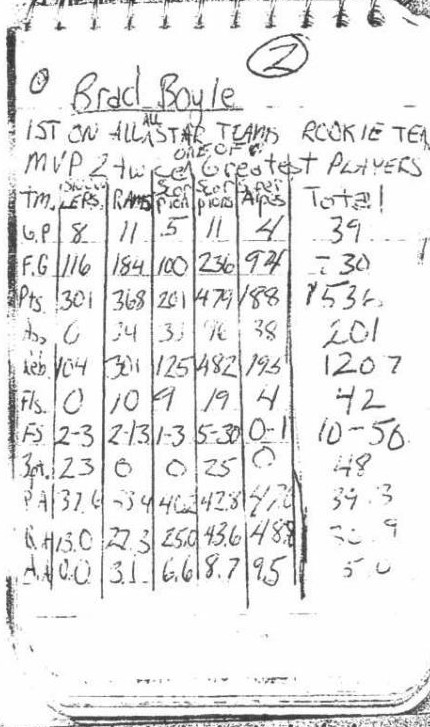 2
Brad Boyle
1ST ON ALL ALL STAR TEAMS ROOKIE TEA
MVP 2 twice ONE OF Greatest PLAYERS
TM. LEPS. RAMS Scor pions Scor pions Total
G.P 8 11 5 11 4 39
F.G 116 184 100 236 94 730
Pts. 301 368 201 479 188 1536
Ass 0 34 38 201
Reb. 104 301 125 482 195 1207
Fls. 0 10 9 19 4 42
FS 2-3 2-13 1-3 5-30 0-1 10-50
3pt. 23 0 0 25 0 48
P.A 37.6 33.4 40.2 42.8 47.0 39.3
R.A 13.0 27.3 25.0 43.6 48.8
A.A 0.0 3.1 6.6 8.7 9.5 5.0